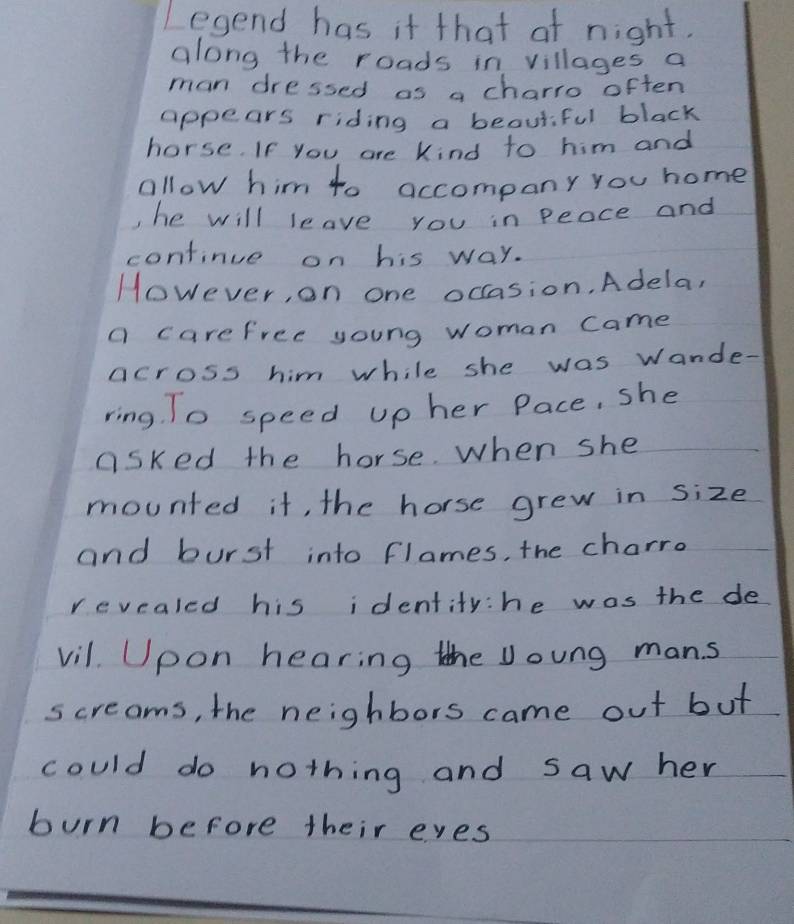 Legend has it that at night.
along the roads in villages a
man dressed as a charro often
appears riding a beautiful black
horse. If you are kind to him and
allow him to accompany you home
, he will leave you in peace and
continue on his way.
However, on one occasion. Adela,
a carefree young woman came
across him while she was wande-
ring. To speed up her Pace, she
asked the horse. When she
mounted it, the horse grew in size
and burst into flames, the charro
revealed his identity: he was the de
vil. Upon hearing the young man.s
screams, the neighbors came out but
could do nothing and saw her
burn before their eyes